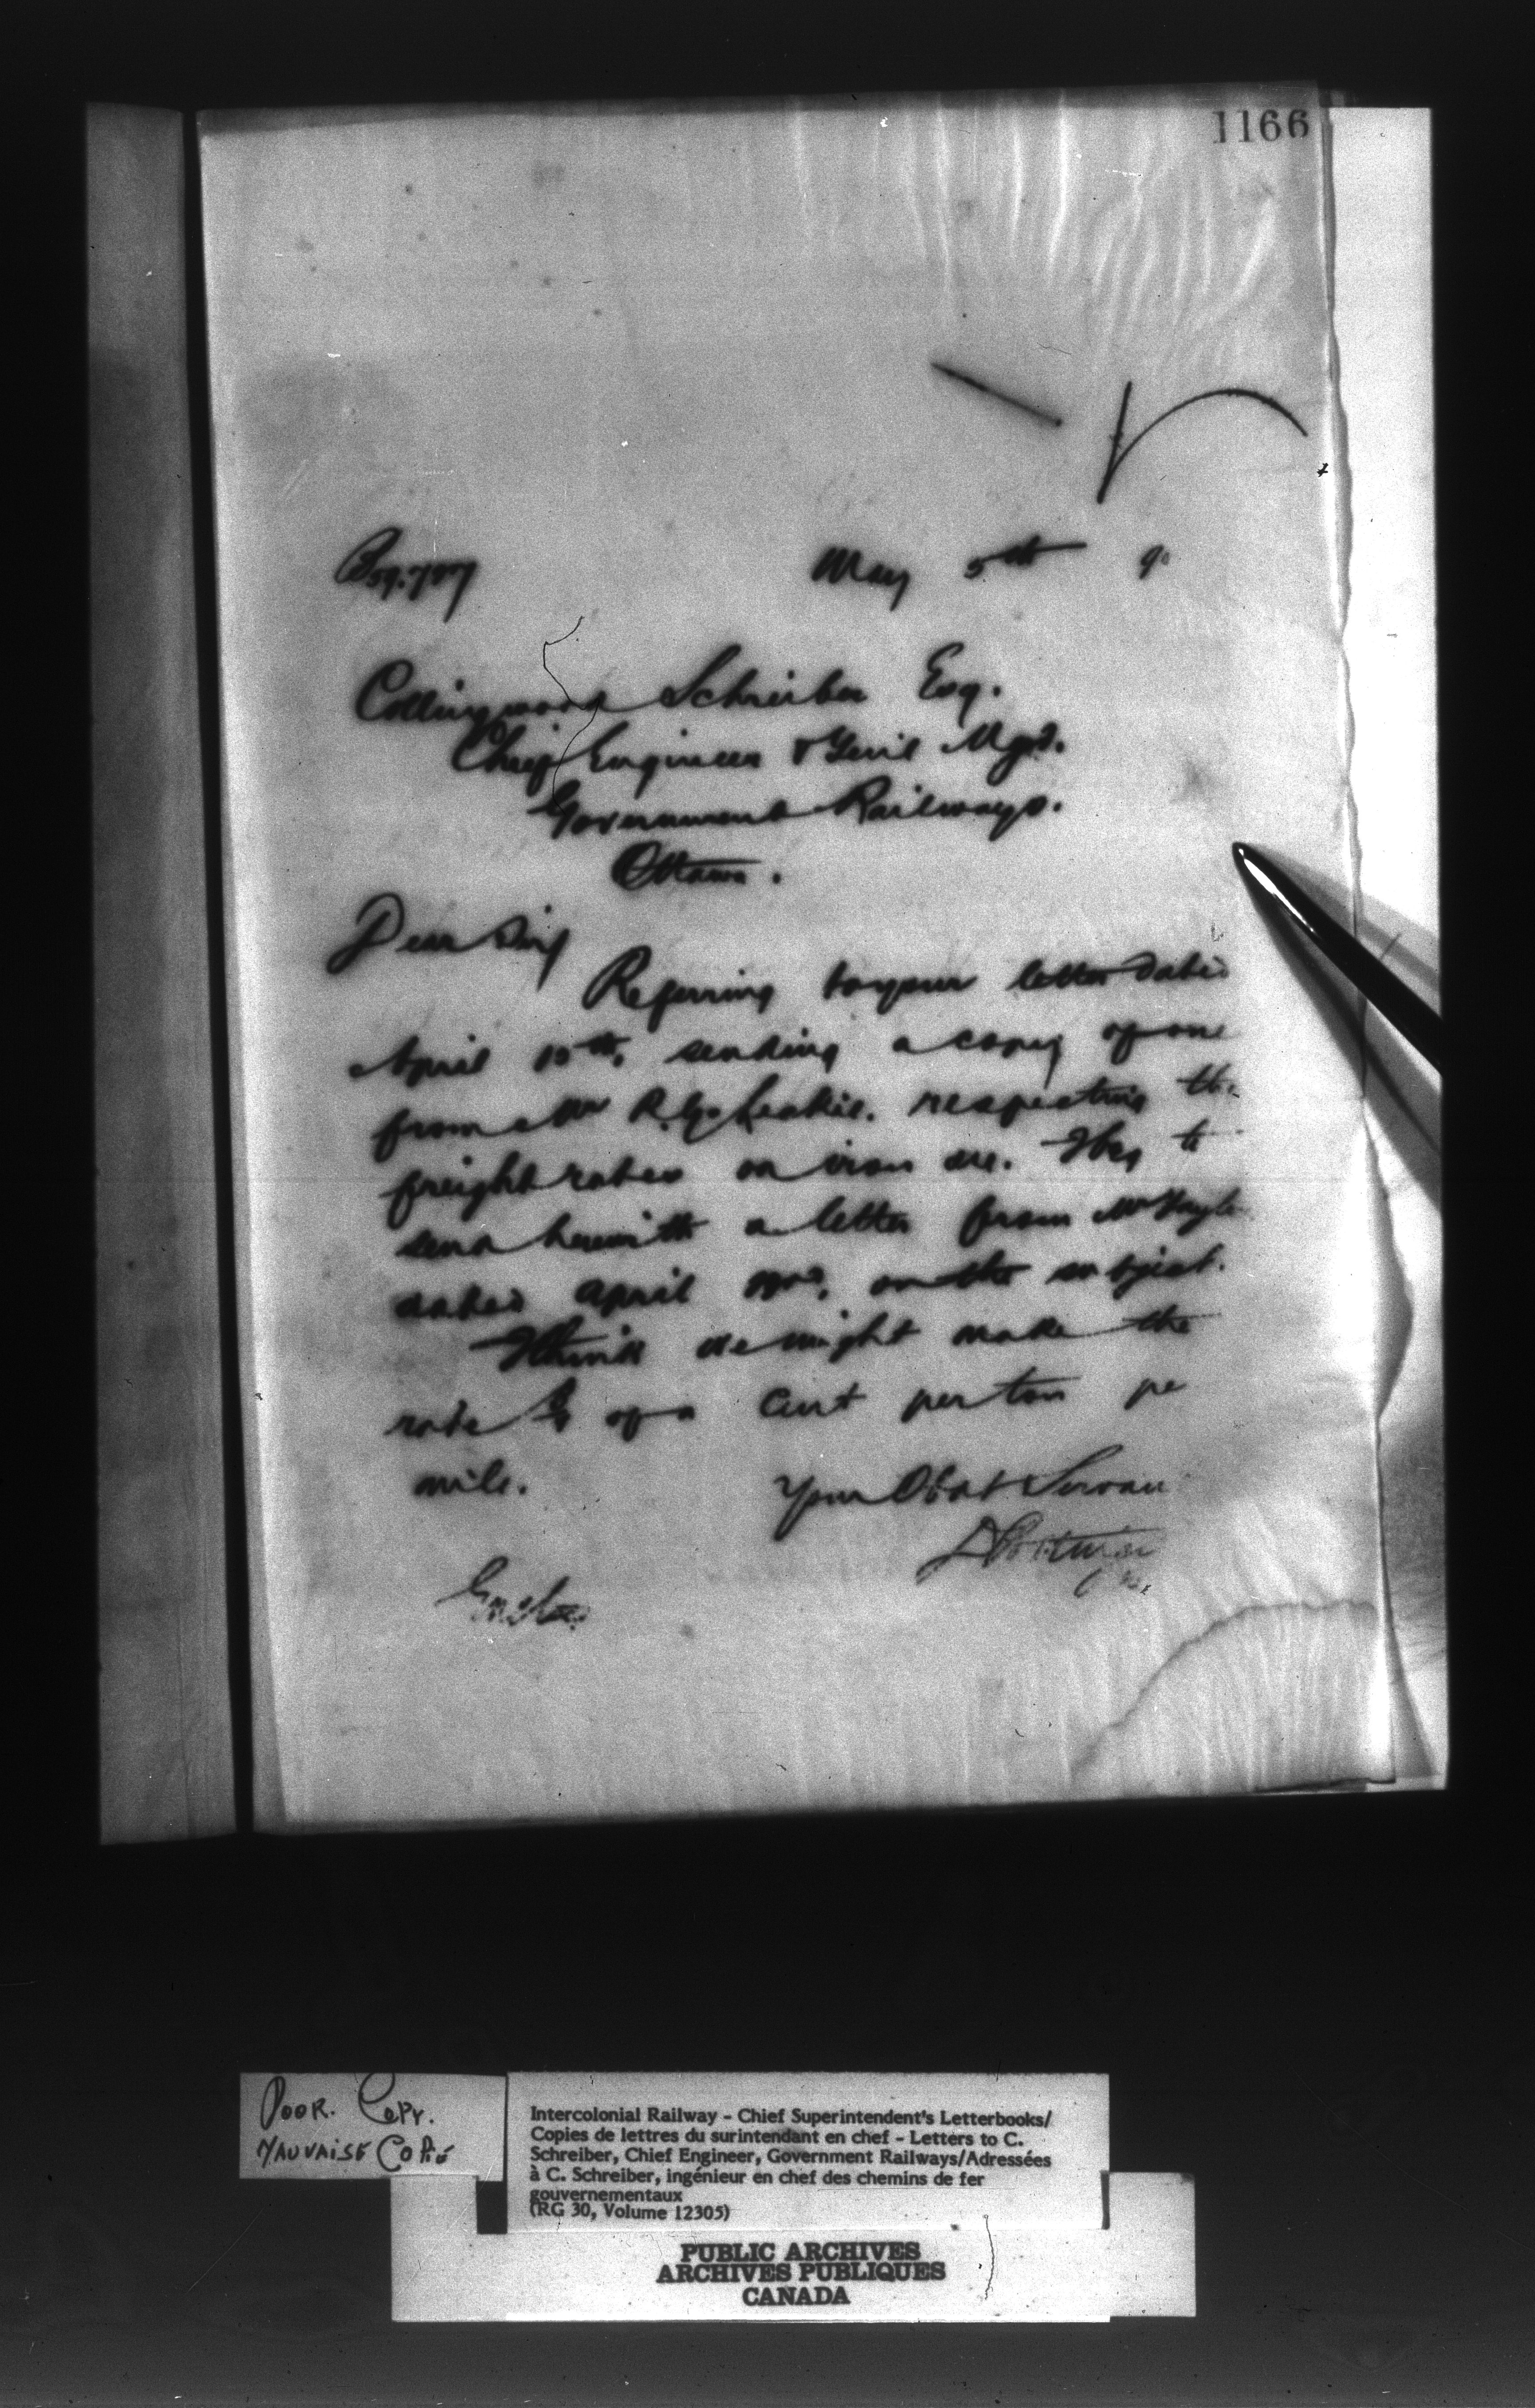 1166
May 5th 90
Collingwood Schreiber Esq.
Chief Engineer & Genl Mgr.
Government Railways.
Ottawa.
Dear Sir
Referring to your letter dated
April 15th, sending a copy of one
from Mr R.G. Leckie. respecting the
freight rates on iron ore. I beg to
send herewith a letter from Mr Taylor
dated April on the subject.
I think we might make the
rate of a cent per ton per
mile.
Your Obdt Servant
D Pottinger
Enclo.
POOR. COPY.
MAUVAISE COPIE
Intercolonial Railway - Chief Superintendent's Letterbooks/
Copies de lettres du surintendant en chef - Letters to C.
Schreiber, Chief Engineer, Government Railways/Adressées
à C. Schreiber, ingénieur en chef des chemins de fer
gouvernementaux
(RG 30, Volume 12305)
PUBLIC ARCHIVES
ARCHIVES PUBLIQUES
CANADA